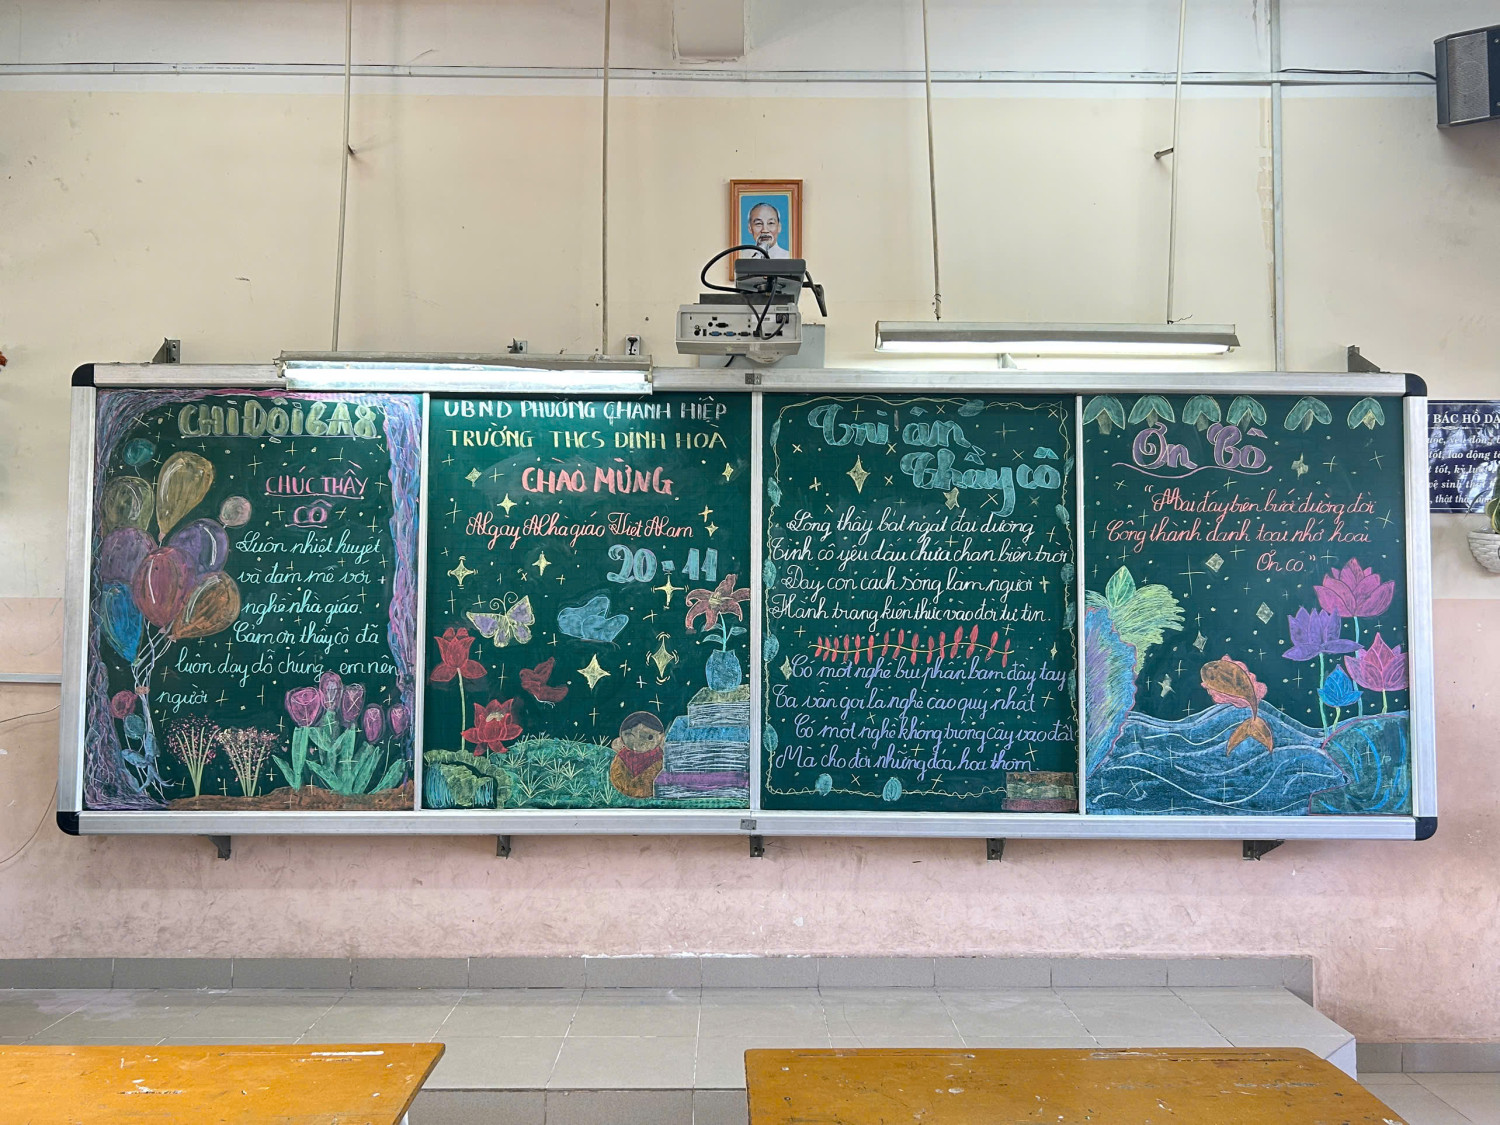 CHI ĐỘI 6A8
CHÚC THẦY
CÔ
Luôn nhiệt huyết
và đam mê với
nghề nhà giáo.
Cảm ơn thầy cô đã
luôn dạy dỗ chúng em nên
người
UBND PHƯỜNG CHÁNH HIỆP
TRƯỜNG THCS ĐỊNH HOÀ
CHÀO MỪNG
Ngày Nhà giáo Việt Nam
20-11
Tri ân
thầy cô
Lòng thầy bát ngát đại dương
Tình cô yêu dấu chứa chan biển trời
Dạy con cách sống làm người
Hành trang kiến thức vào đời tự tin.
Có một nghề bụi phấn bám đầy tay
Ta vẫn gọi là nghề cao quý nhất
Có một nghề không trồng cây vào đất
Mà cho đời những đoá hoa thơm
Ơn Cô
"Mai đây trên bước đường đời
Công thành danh toại nhớ hoài
Ơn cô."
BÁC HỒ DẠ
tốt, lao động tố
t tốt, kỷ lu
vệ sinh th
, thật thà,